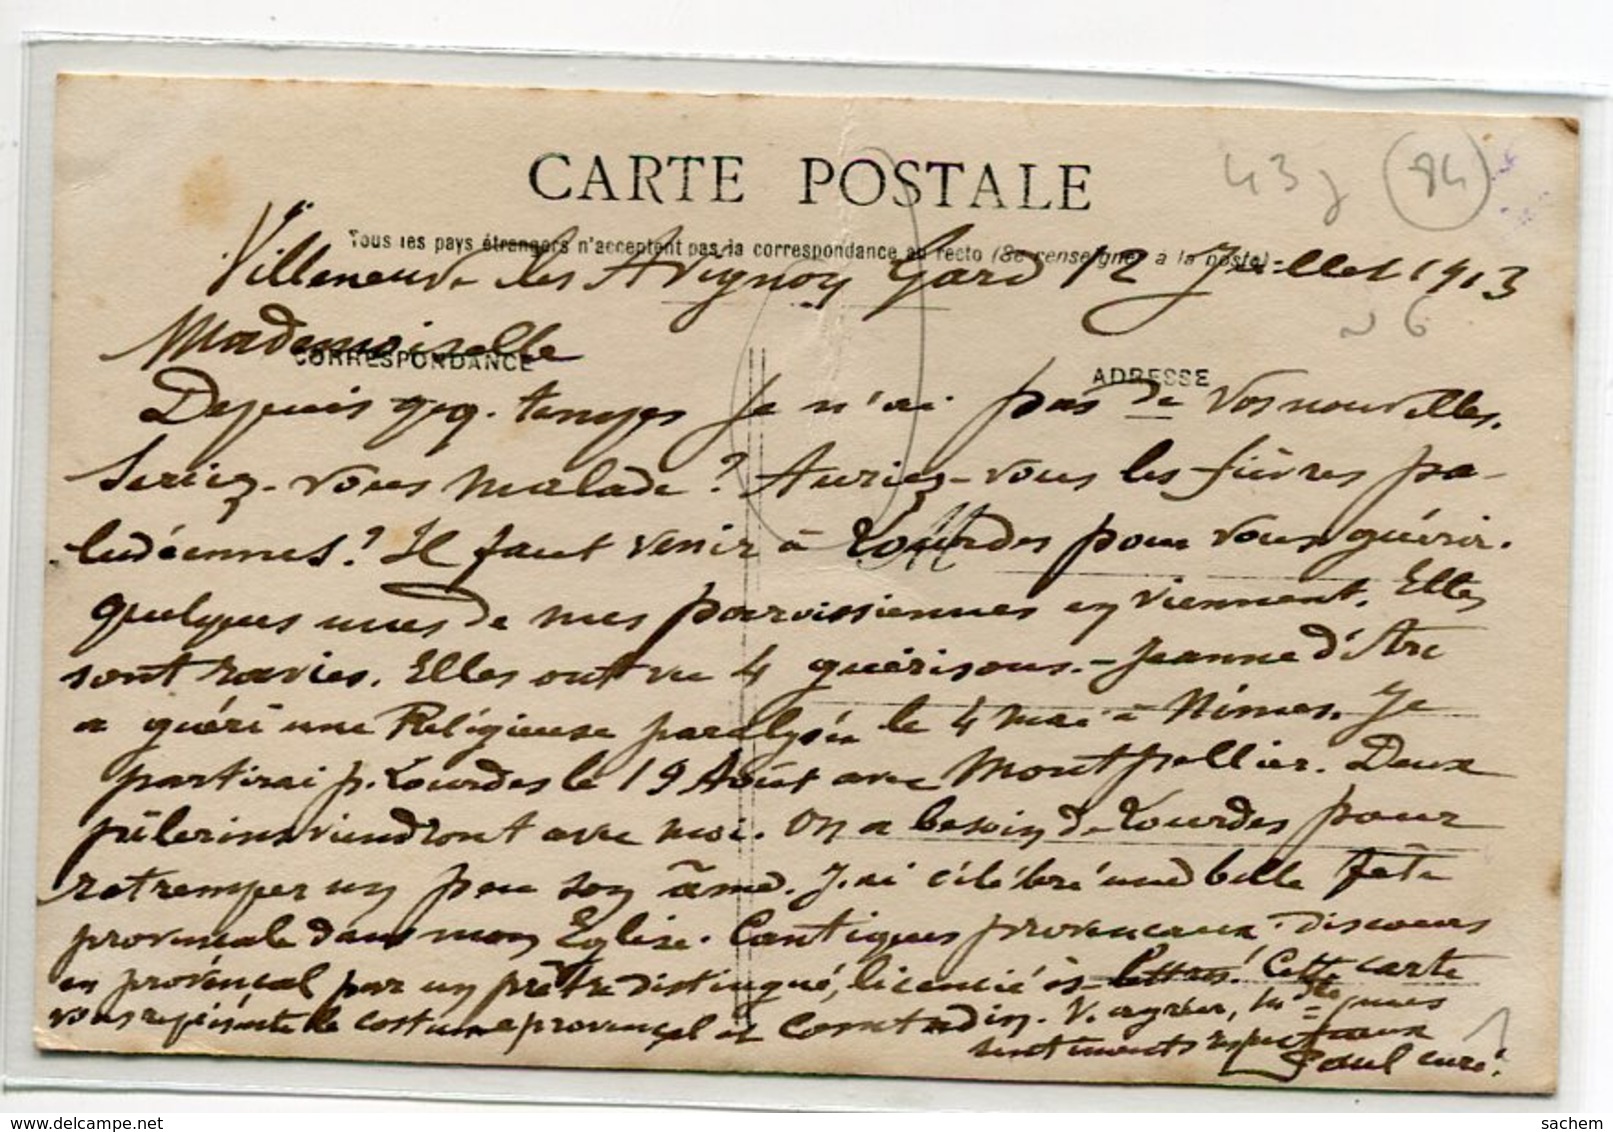 43 J 84
CARTE POSTALE
Tous les pays étrangers n'acceptent pas la correspondance au recto (Se renseigner à la poste)
Villeneuve les Avignon Gard 12 Juillet 1913
Mademoiselle
CORRESPONDANCE ADRESSE
Depuis qq. temps je n'ai pas de vos nouvelles.
Seriez-vous malade ? Auriez-vous les fièvres pa-
ludéennes ? Il faut venir à Lourdes pour vous guérir.
quelques unes de mes paroissiennes en viennent. Elles
sont ravies. Elles ont vu 4 guérisons. - Jeanne d'Arc
a guéri une Religieuse paralysée le 4 Mai à Nimes. Je
partirai p. Lourdes le 19 Août avec Montpellier. Deux
pèlerins viendront avec moi. On a besoin de Lourdes pour
retremper un peu son âme. J'ai célébré une belle fête
provençale dans mon Eglise. Cantiques provencaux. discours
en provençal par un prêtre distingué, licencié ès-lettres. Cette carte
vous représente le costume provençal et Comtadin. V. agréer, Mdlle, mes
sentiments respectueux
Paul curé.
sachem
delcampe.net